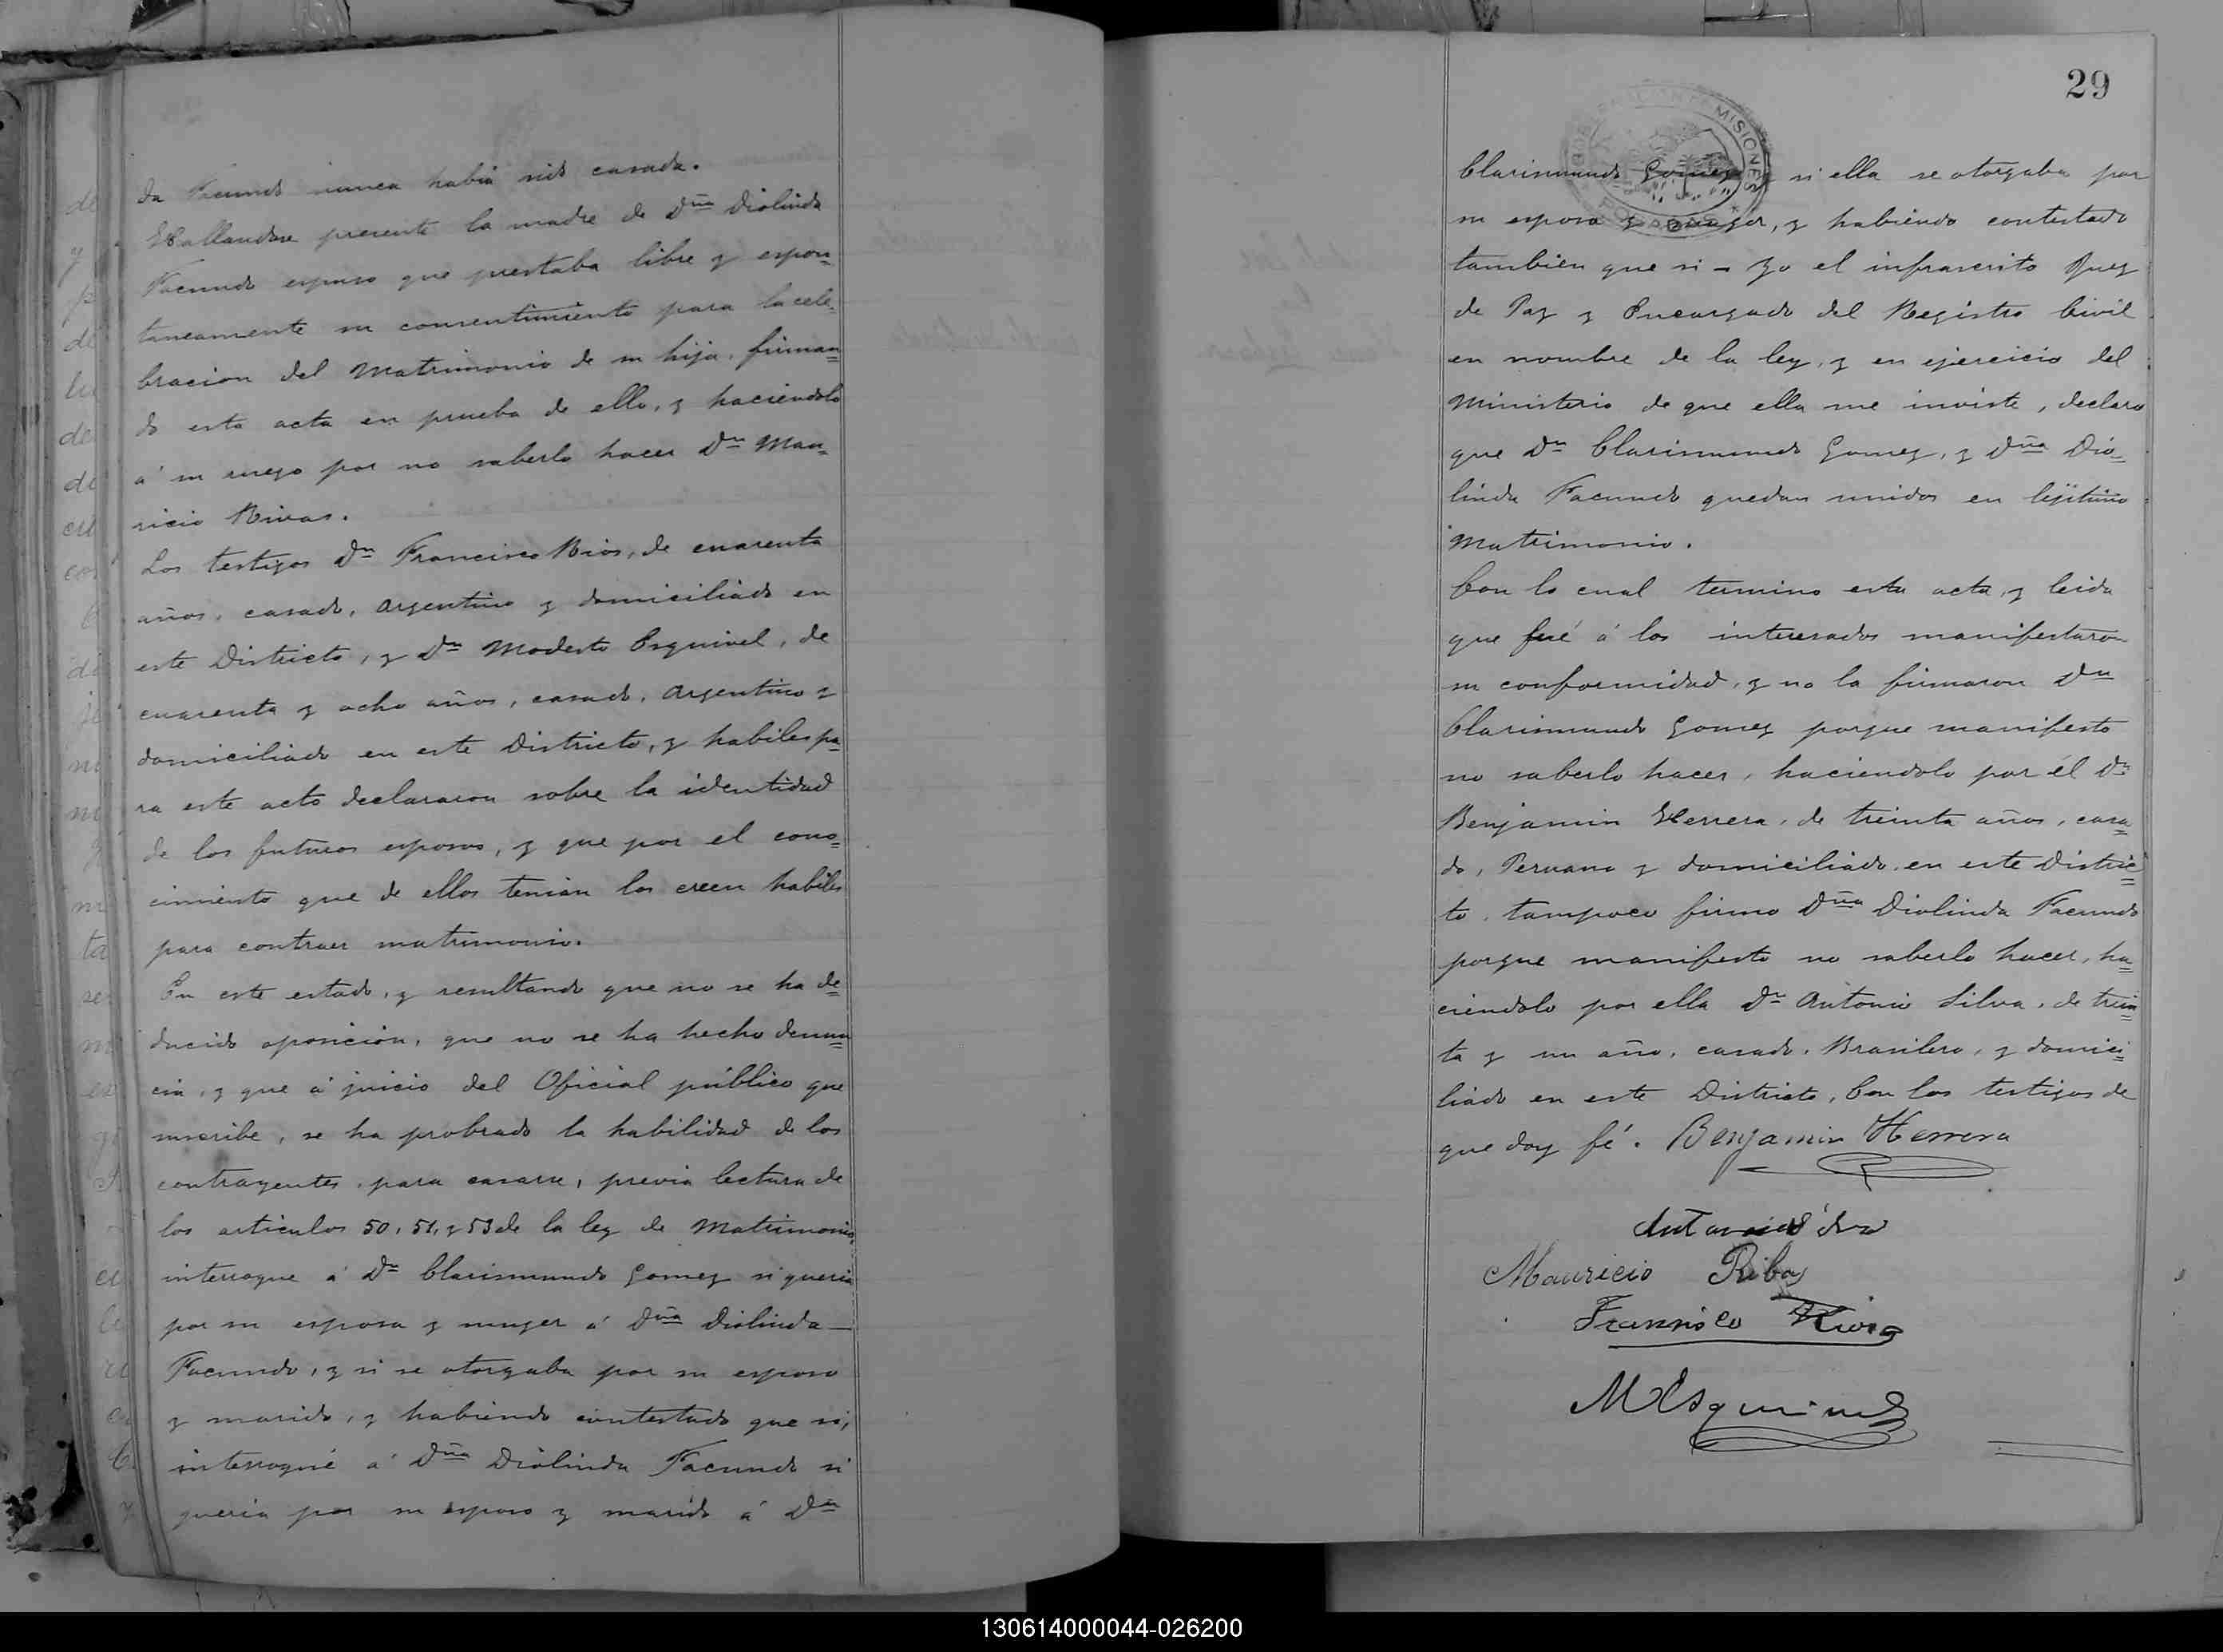 da Facundo nunca habia sido casada.
Hallandose presente la madre de Dña Diolinda
Facundo espuso que prestaba libre y espon-
taneamente su consentimiento para la cele-
bracion del Matrimonio de su hija, firman=
do esta acta en prueba de ello, y haciendolo
á su ruego por no saberlo hacer Dn Mau-
ricio Rivas.
Los testigos Dn Francisco Rios, de cuarenta
años, casado, Argentino y domiciliado en
este Districto, y Dn Modesto Esquivel, de
cuarenta y ocho años, casado, Argentino y
domiciliado en este Districto, y habiles pa=
ra este acto declararon sobre la identidad
de los futuros esposos, y que por el cono=
cimiento que de ellos tenian los creen habiles
para contraer matrimonio.
En este estado, y resultando que no se ha de=
ducido oposicion, que no se ha hecho denun=
cia, y que á juicio del Oficial público que
suscribe, se ha probado la habilidad de los
contrayentes para casarse, previa lectura de
los articulos 50, 51, y 53 de la ley de Matrimonio
interrogue á Dn Clarismundo Gomez si queria
por su esposa y muger á Dña Diolinda —
Facundo, y si se otorgaba por su esposo
y marido, y habiendo contestado que si,
interrogué á Dña Diolinda Facundo si
queria por su esposo y marido á Dn
29
MISIONES
Clarismundo Gomez y si ella se otorgaba por
su esposa y muger, y habiendo contestado
tambien que si - Yo el infrascrito Juez
de Paz y Encargado del Registro Civil
en nombre de la ley, y en ejercicio del
Ministerio de que ella me inviste, declaro
que Dn Clarismundo Gomez, y Dña Dio=
linda Facundo quedan unidos en lejitimo
Matrimonio.
Con lo cual termino esta acta, y leida
que fué á los interesados manifestaron
su conformidad, y no la firmaron Dn
Clarismundo Gomez porque manifesto
no saberlo hacer, haciendolo por él Dn
Benjamin Herrera, de treinta años, casa=
do, Peruano y domiciliado en este Distric=
to, tampoco firmo Dña Diolinda Facundo
porque manifesto no saberlo hacer, ha=
ciendolo por ella Dn Antonio Silva, de trein=
ta y un año, casado, Brasilero, y domici=
liado en este Districto, Con los testigos de
que doy fé. Benjamin Herrera
Mauricio Ribas
Francisco Rios
M Esquivel
130614000044-026200